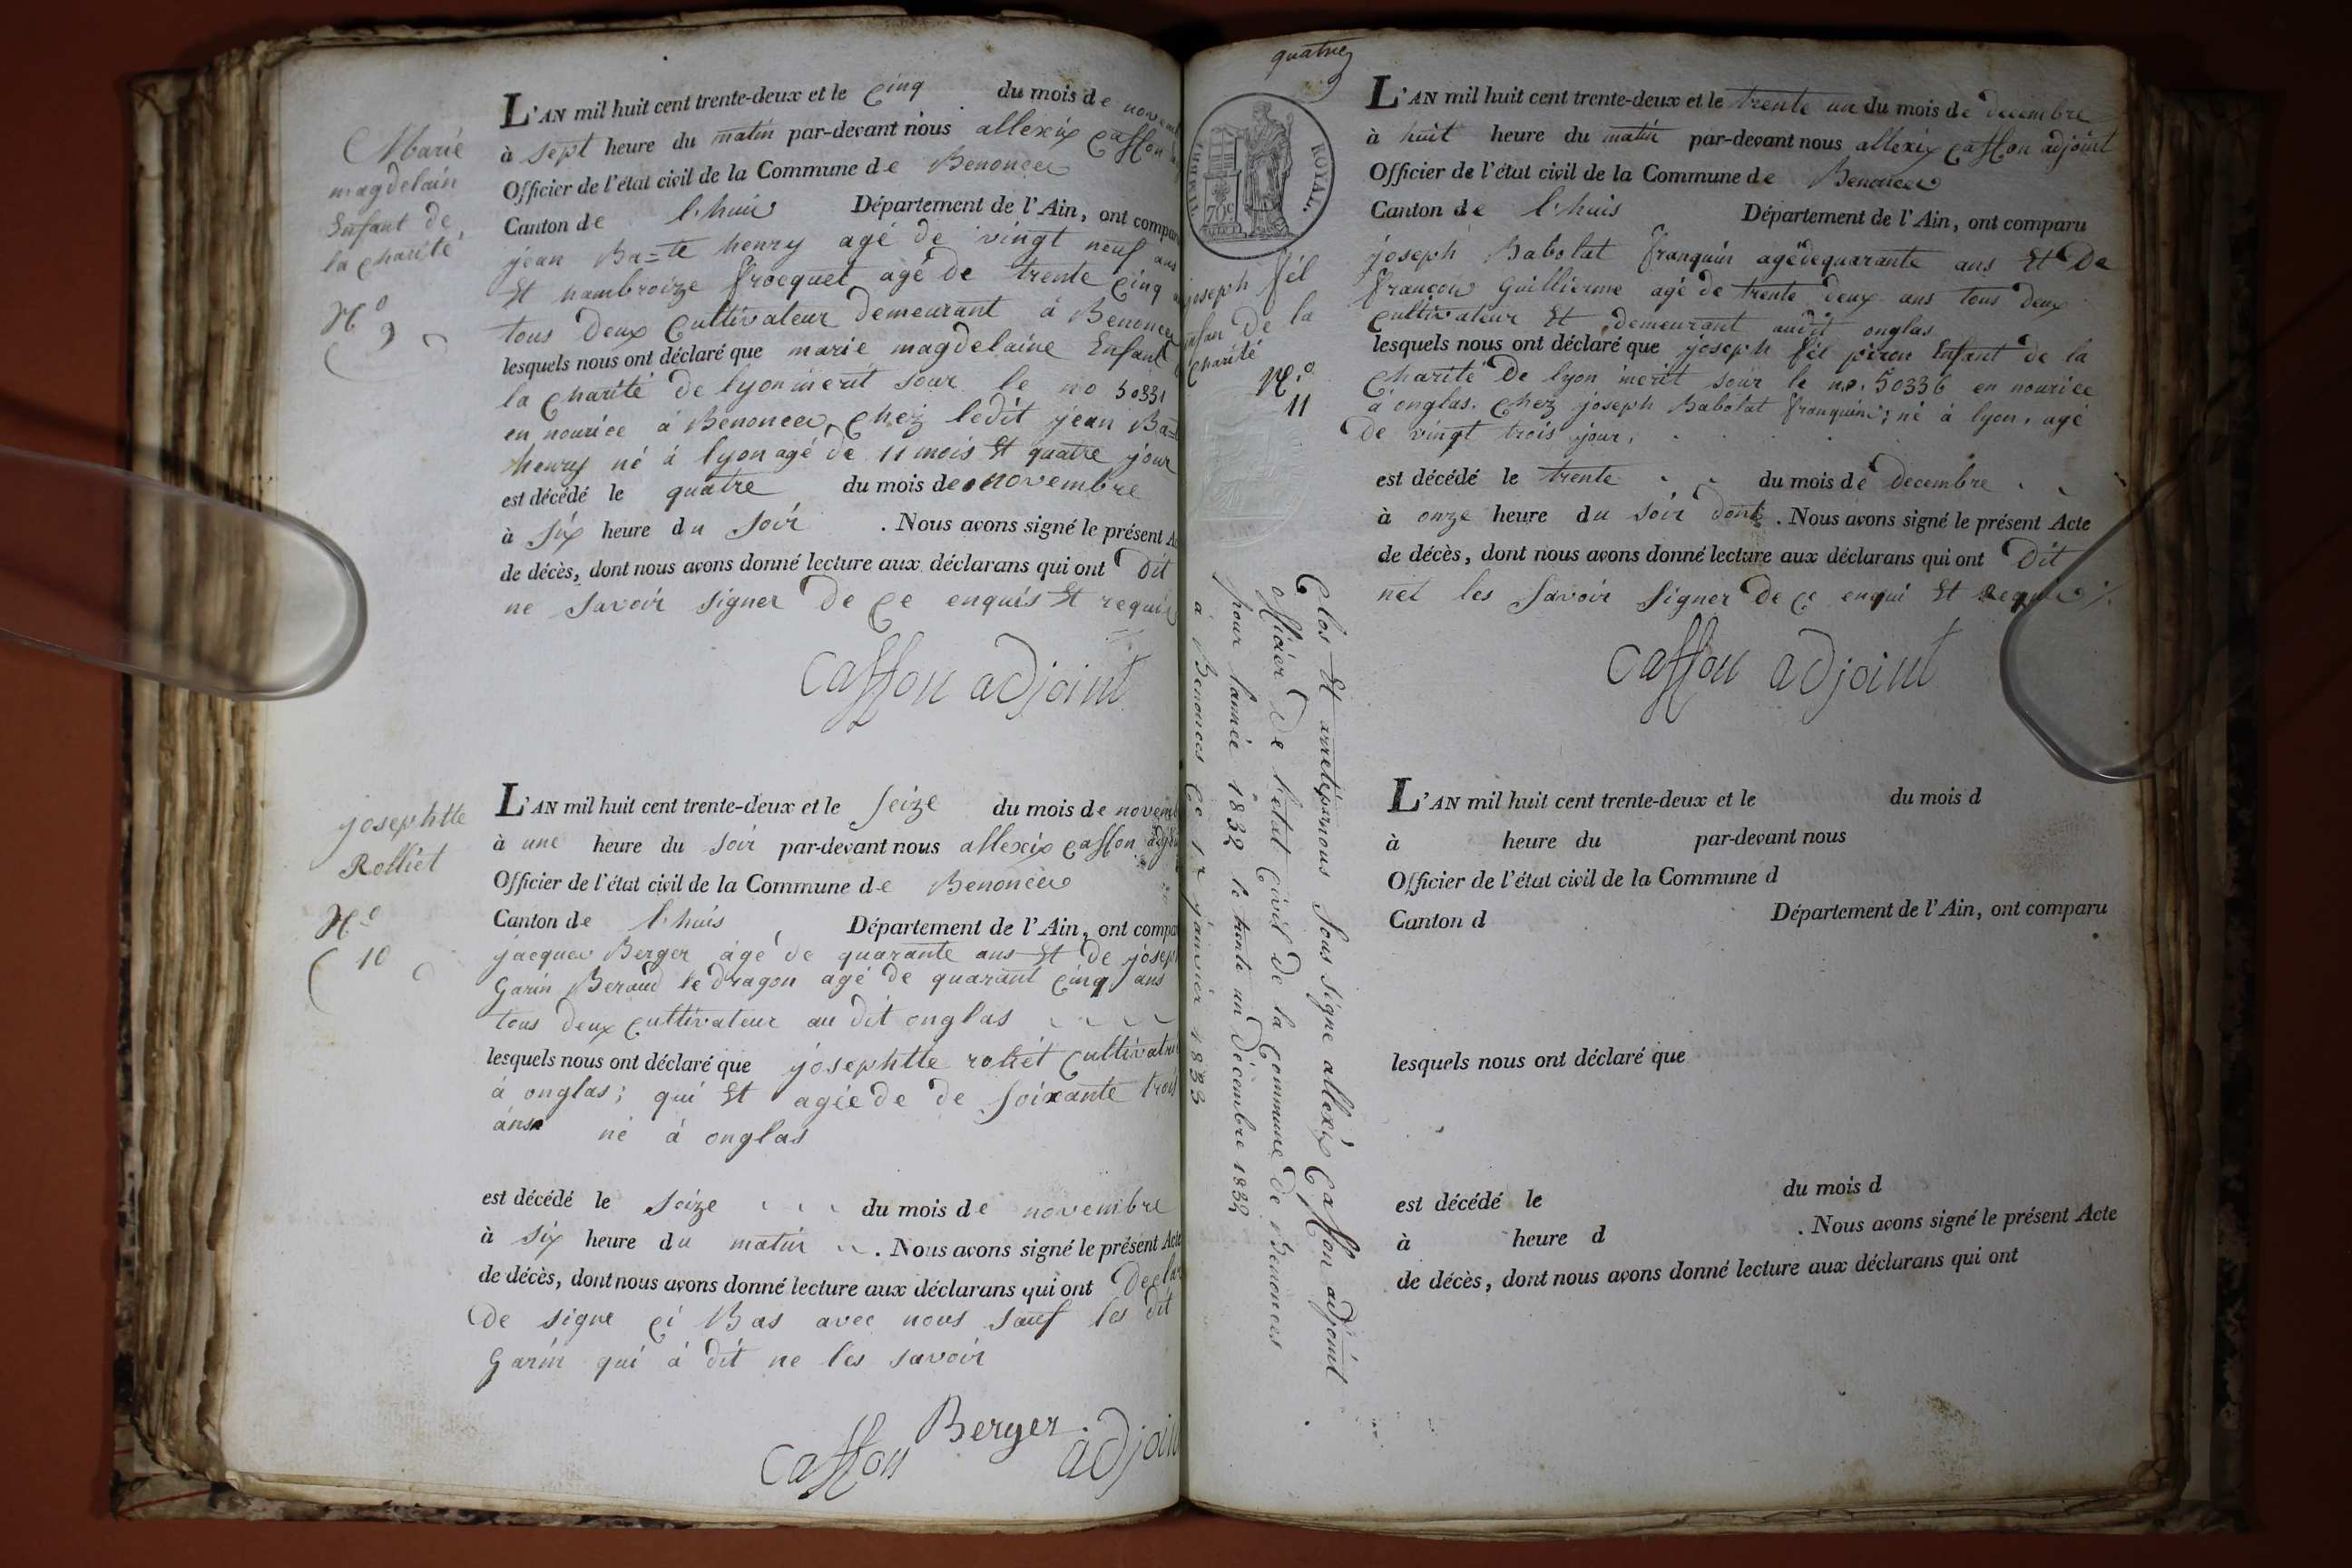 Marie
magdelain
Enfant de
la charité
No
9
L'AN mil huit cent trente-deux et le cinq du mois de
à sept heure du matin par-devant nous allexix Casson
Officier de l'état civil de la Commune de Benonces
Canton de l'huis Département de l'Ain, ont compar
jean Ba=te henry agé de vingt neuf ans
Et nambroize frocquet agé de trente cinq
tous deux cultivateur demeurant à Benonces
lesquels nous ont déclaré que marie magdelaine Enfant
la charité de lyon incrit sour le no 50331
en nourice à Benonces, chez ledit jean Ba=
henry né à lyon agé de 11 mois Et quatre jour
est décédé le quatre du mois de novembre
à six heure du soir . Nous avons signé le présent A
de décès, dont nous avons donné lecture aux déclarans qui ont dit
ne savoir signer de ce enquis Et requis
Casson adjoint
josephtte
Rolliet
No
10
L'AN mil huit cent trente-deux et le seize du mois de novem
à une heure du soir par-devant nous allexix Casson adj
Officier de l'état civil de la Commune de Benonces
Canton de l'huis Département de l'Ain, ont compa
jacques Berger agé de quarante ans Et de josep
Garin Beraud le dragon agé de quarant cinq ans
tous deux cultivateur au dit onglas
lesquels nous ont déclaré que josephtte roliet cultivat
à onglas; qui Et agée de de soixante trois
ans né à onglas
est décédé le seize du mois de novembre
à six heure du matin . Nous avons signé le présent Acte
de décès, dont nous avons donné lecture aux déclarans qui ont declar
de signe ci Bas avec nous sauf les dit
Garin qui à dit ne les savoir
Berger
Casson adjoin
quatre
TIMBRE ROYAL.
70c
joseph fél
enfan de la
charité
No
11
L'AN mil huit cent trente-deux et le trente un du mois de decembre
à huit heure du matin par-devant nous allexix Casson adjoint
Officier de l'état civil de la Commune de Benonces
Canton de l'huis Département de l'Ain, ont comparu
joseph Babolat franquin agé de quarante ans Et De
françois Guillierme agé de trente deux ans tous deux
cultivateur Et demeurant audit onglas
lesquels nous ont déclaré que joseph fél piron Enfant de la
charité De lyon incrit sour le no. 50336 en nourice
à onglas. chez joseph Babolat franquin; né à lyon, agé
de vingt trois jour,
est décédé le trente du mois de decembre
à onze heure du soir dont . Nous avons signé le présent Acte
de décès, dont nous avons donné lecture aux déclarans qui ont Dit
net les savoir signer De ce enqui Et Requis
Casson adjoint
Clos Et arretéparnous Sous signe allexix Casson adjoint
officier De l'etat civil de la Commune de Benonces
pour lannée 1832 le trente un decembre 1832
à Benonces ce 1r janvier 1833
L'AN mil huit cent trente-deux et le du mois d
à heure du par-devant nous
Officier de l'état civil de la Commune d
Canton d Département de l'Ain, ont comparu
lesquels nous ont déclaré que
est décédé le du mois d
à heure d . Nous avons signé le présent Acte
de décès, dont nous avons donné lecture aux déclarans qui ont